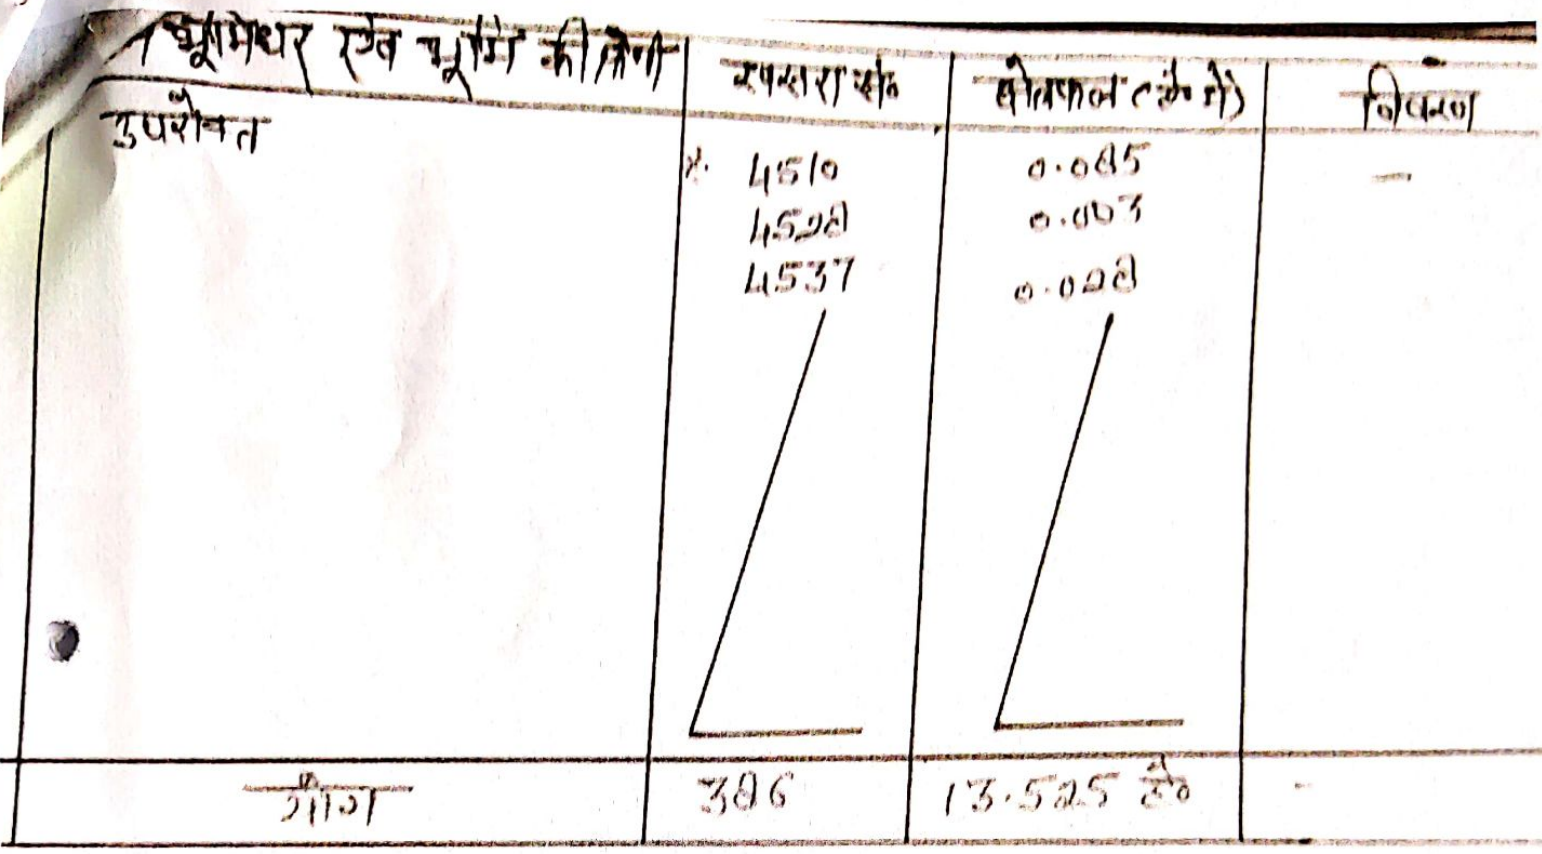 भूमिधर एवं भूमि की श्रेणी खसरा सं० क्षेत्रफल (हे० में) विवरण
उपरोक्त
4510 0.085 —
4528 0.003
4537 0.028
योग 386 13.525 हे० -